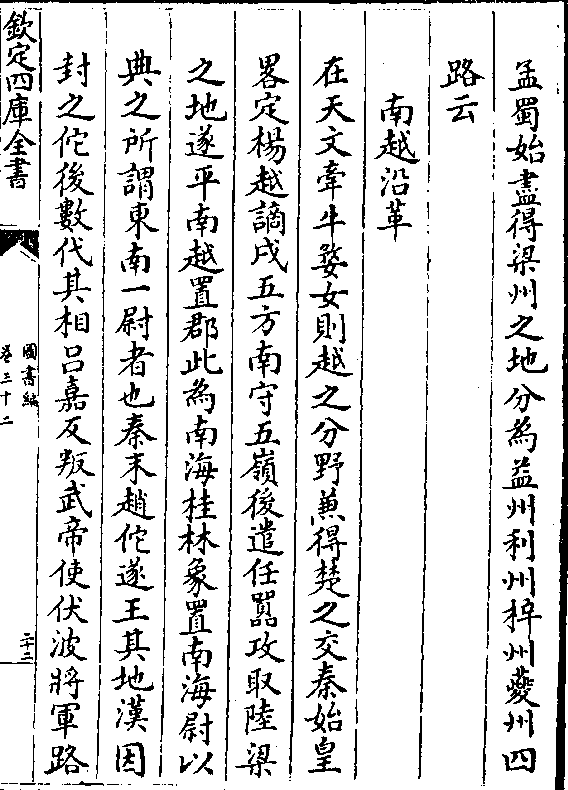 孟蜀始盡得梁州之地分為益州利州梓州夔州四
路云
南越沿革
在天文牽牛婺女則越之分野兼得楚之交秦始皇
畧定楊越謫戍五方南守五嶺後遣任囂攻取陸梁
之地遂平南越置郡此為南海桂林象置南海尉以
典之所謂東南一尉者也秦末趙佗遂王其地漢因
封之佗後數代其相吕嘉反叛武帝使伏波將軍路
欽定四庫全書
圖書編
卷三十二
二十二